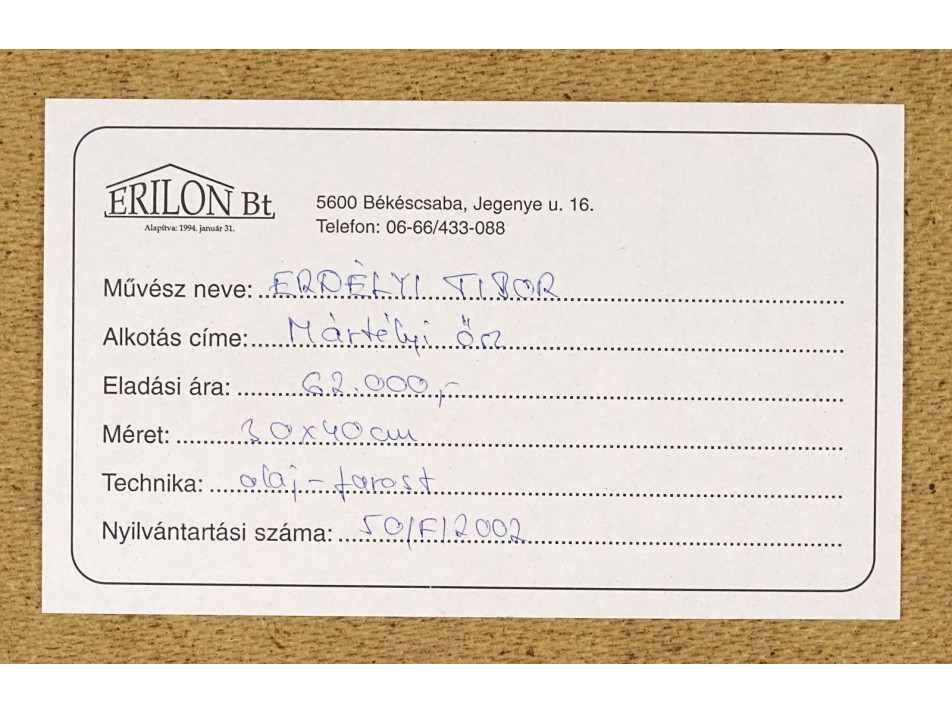 ERILON Bt.
Alapítva: 1994. január 31.
5600 Békéscsaba, Jegenye u. 16.
Telefon: 06-66/433-088
Művész neve: ERDÉLYI TIBOR
Alkotás címe: Mártélyi ősz
Eladási ára: 62.000,-
Méret: 30x40 cm
Technika: olaj-farost
Nyilvántartási száma: 50/F/2002